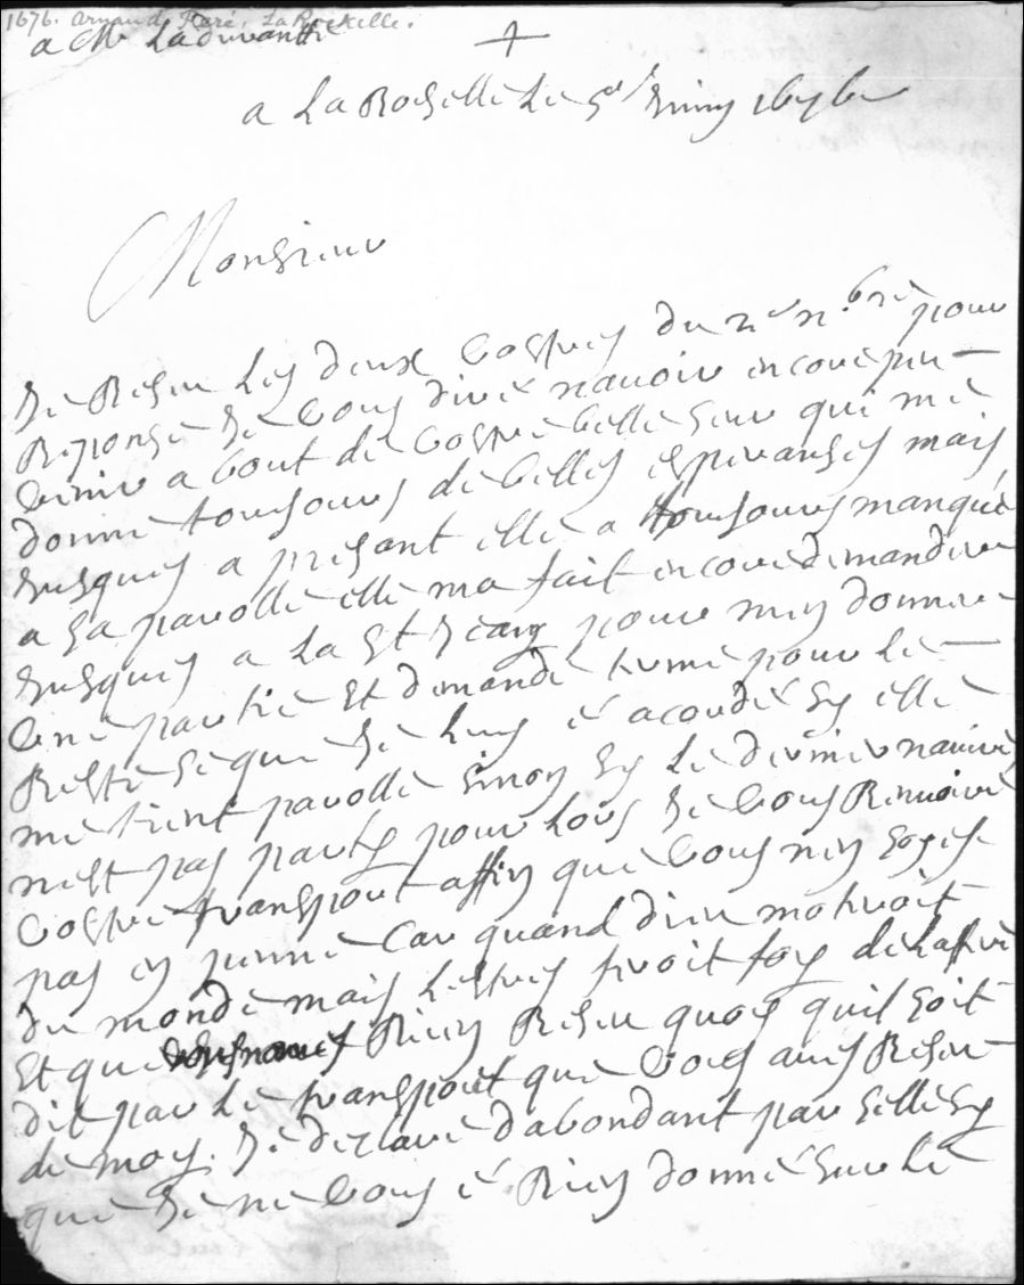 1676. Arnaud Peré. La Rochelle.
a Mr Laduvantie
a La Rochelle Le 5e Juing 1676
Monsieur
Jé Reseu Les deux vostres du 2e n.bre pour
Reponse Je vous diré navoir encore peu
venir a bout de vostre belle seur qui me
donne tousjours de belles esperanses mais
Jusques a presant elle a tousjours manqué
a sa parolle elle ma fait encore demander
Jusques a la St Jean pour men donner
une partie et demande terme pour le
Reste se que Je luy é acordé sy elle
me tient parolle sinon sy le dernier navire
nest pas party pour lors Je vous Renvoiré
vostre transport affin que vous nen soyes
pas en penne car quand dieu motroit
du monde mais lestres feroit foy de lastre
Et que vous naves Rien Reseu quoy quil soit
dit par le transport que vous aves Reseu
de moy. Je declare dabondant par selle sy
que Je ne vous é Rien donné sur le